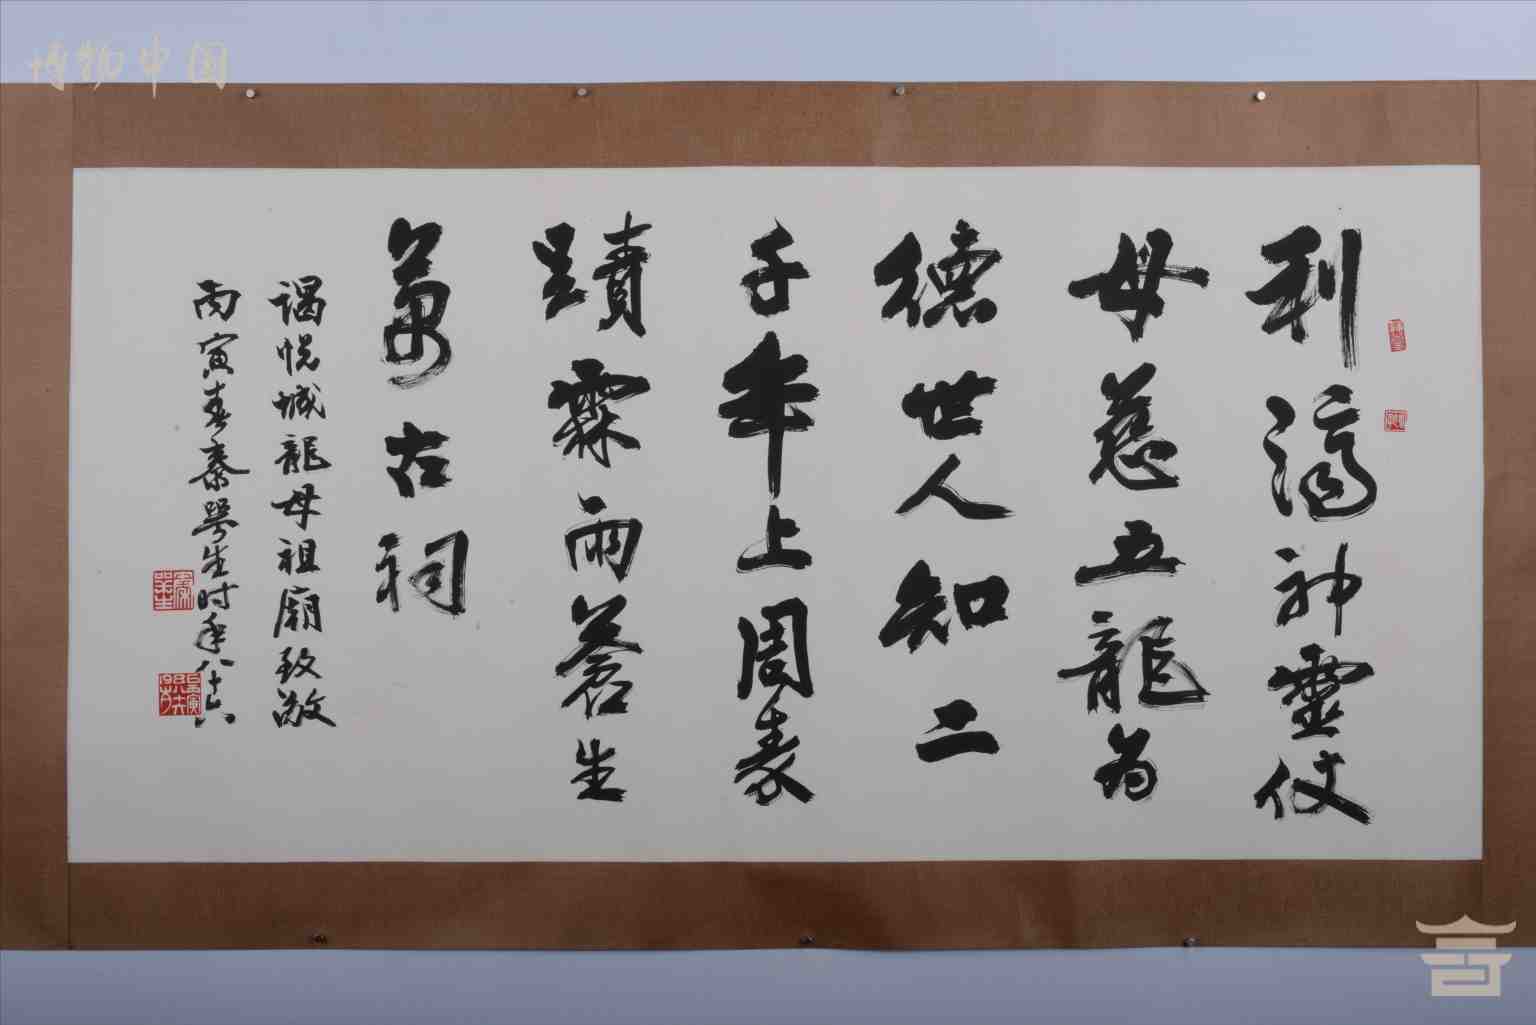 博物中国
利濟神靈仗
母慈五龍为
德世人知二
千年上周秦
蹟霖雨蒼生
萬古祠
謁悅城龍母祖廟致敬
丙寅春秦咢生时年八十六